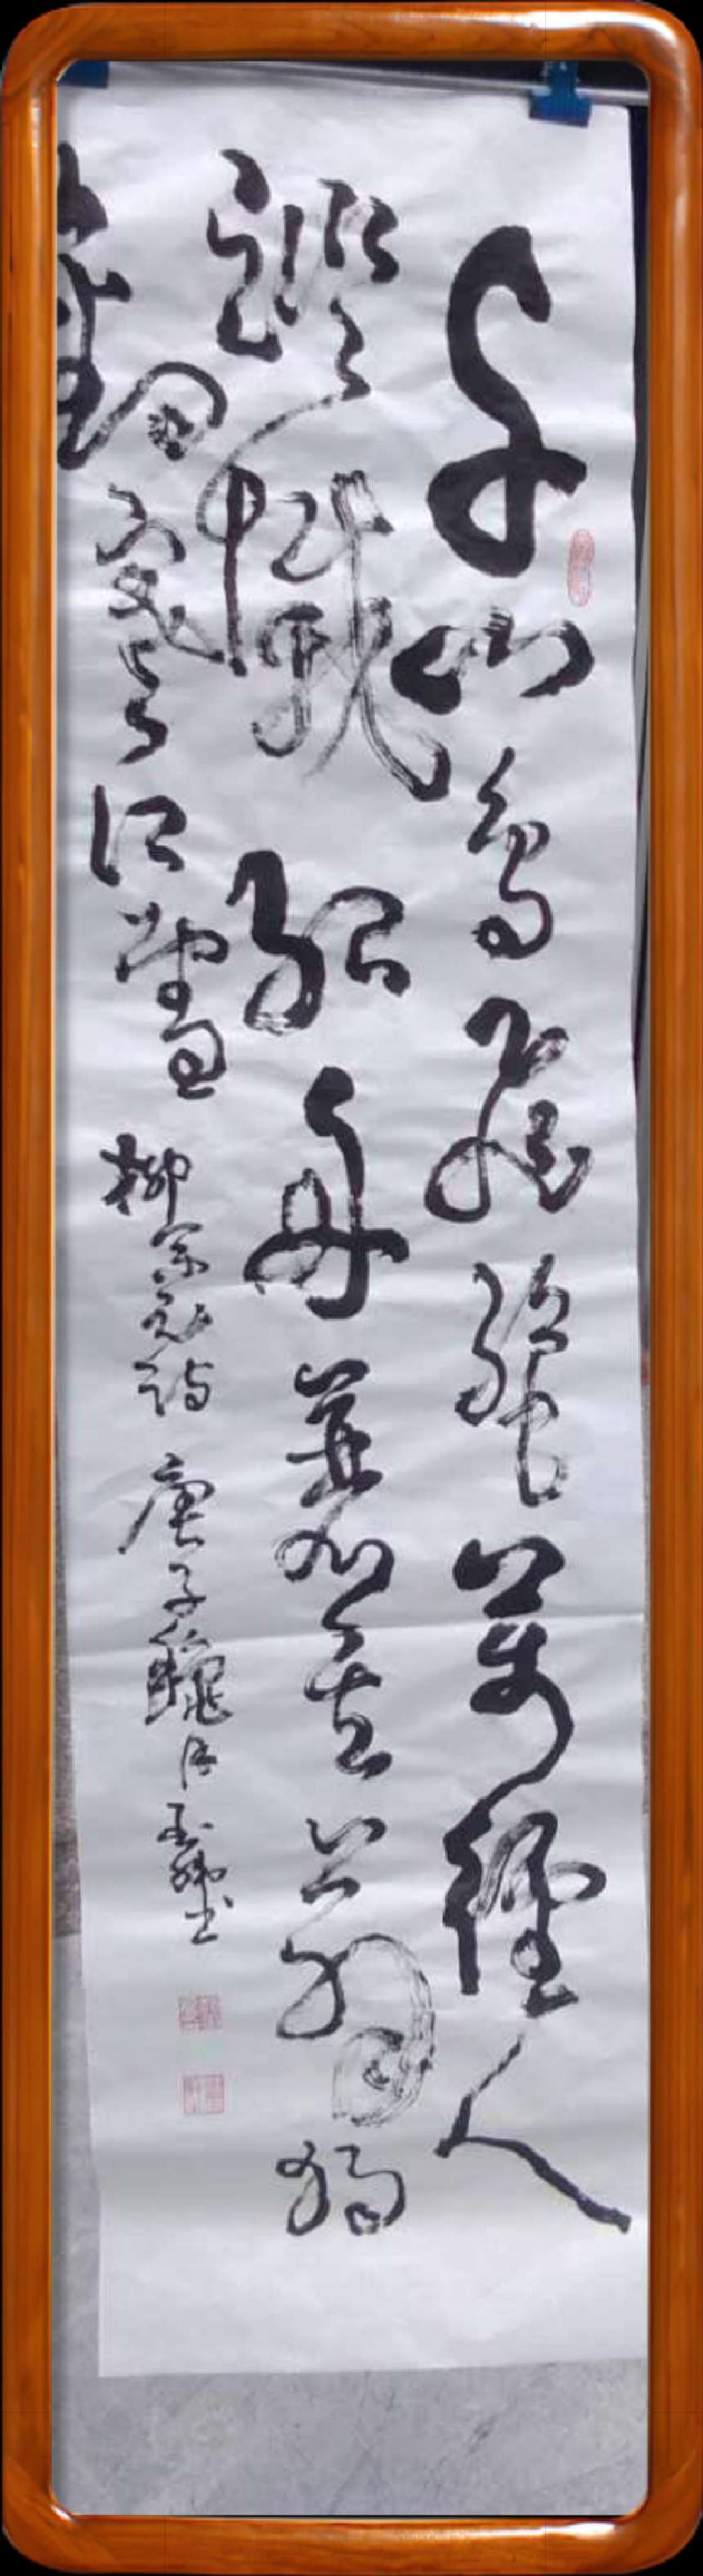 千山鳥飛絕萬徑人
蹤滅孤舟蓑笠翁獨
釣寒江雪 柳宗元詩 庚子臘月玉书